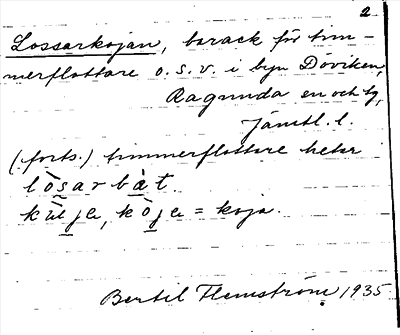 2
Lossarkojan, barack för tim-
merflottare o.s.v. i byn Döviken,
Ragunda sn och tg,
Jämtl. l.
(forts.) timmerflottare heter
lòsarbàt.
kòje = koja.
Bertil Flemström 1935